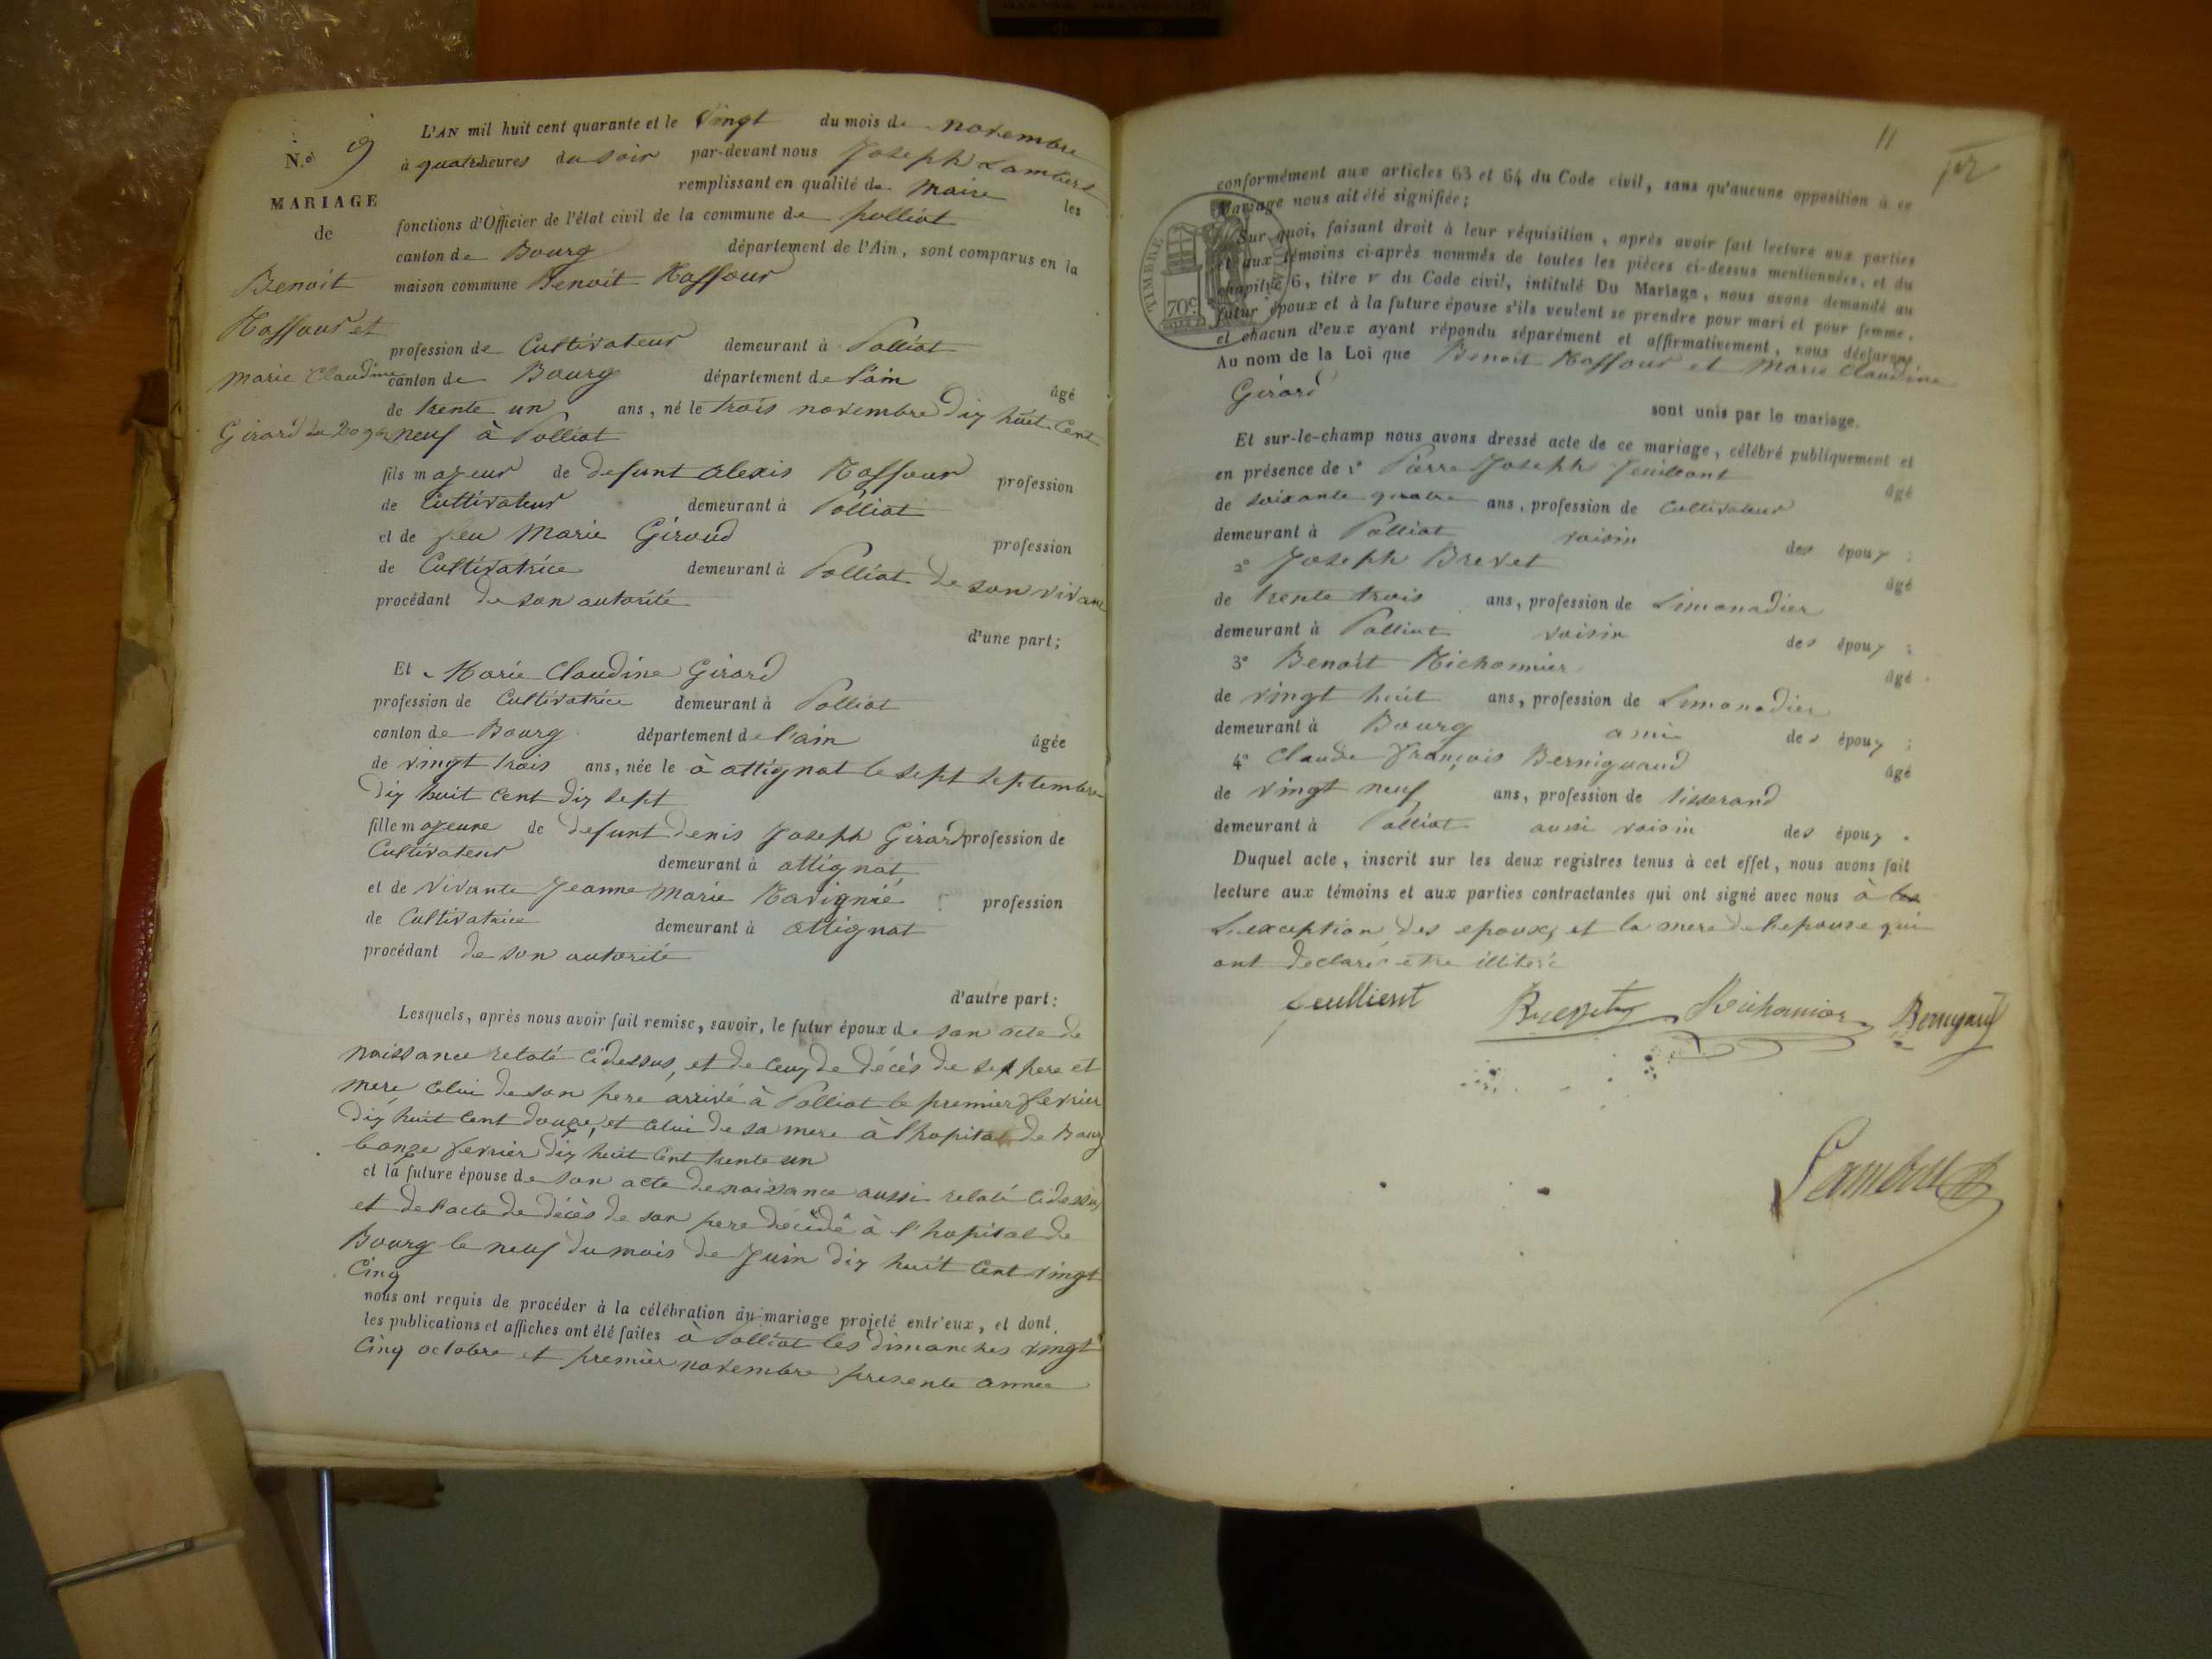 N.º 9
MARIAGE
de
Benoit
Raffour et
marie Claudine
Girard du 20 9bre
L'AN mil huit cent quarante et le vingt du mois de novembre
à quatre heures du soir par-devant nous Joseph Lambert
remplissant en qualité de maire les
fonctions d'Officier de l'état civil de la commune de polliat
canton de Bourg département de l'Ain, sont comparus en la
maison commune Benoit Raffour
profession de Cultivateur demeurant à Polliat
canton de Bourg département de l'ain âgé
de trente un ans, né le trois novembre dix huit Cent
neuf à Polliat
fils majeur de defunt alexis Raffour profession
de Cultivateur demeurant à Polliat
et de feu Marie Giroud profession
de Cultivatrice demeurant à Polliat de son vivant
procédant de son autorité
d'une part;
Et Marie Claudine Girard
profession de Cultivatrice demeurant à Polliat
canton de Bourg département de l'ain âgée
de vingt trois ans, née le à attignat le sept septembre
dix huit cent dix sept
fille majeure de defunt denis Joseph Girard profession de
Cultivateur demeurant à attignat
et de vivante Jeanne Marie profession
de Cultivatrice demeurant à attignat
procédant de son autorité
d'autre part:
Lesquels, après nous avoir fait remise, savoir, le futur époux de son acte de
naissance relaté cidessus, et de ceux de décès de ses pere et
mere, celui de son pere arrivé à Polliat le premier fevrier
dix huit cent douze, et celui de sa mere à l'hopital de Bourg
le onze fevrier dix huit cent trente un
et la future épouse de son acte de naissance aussi relaté cidessus
et de l'acte de décès de son pere décédé à l'hopital de
Bourg le neuf du mois de Juin dix huit Cent vingt
Cinq
nous ont requis de procéder à la célébration du mariage projeté entr'eux, et dont
les publications et affiches ont été faites à Polliat les dimanches vingt
Cinq octobre et premier novembre presente année
11
conformément aux articles 63 et 64 du Code civil, sans qu'aucune opposition à ce
mariage nous ait été signifiée;
Sur quoi, faisant droit à leur réquisition, après avoir fait lecture aux parties
et aux témoins ci-après nommés de toutes les pièces ci-dessus mentionnées, et du
chapitre 6, titre V du Code civil, intitulé Du Mariage, nous avons demandé au
futur époux et à la future épouse s'ils veulent se prendre pour mari et pour femme,
et chacun d'eux ayant répondu séparément et affirmativement, nous déclarons
TIMBRE ROYAL
70c.
Au nom de la Loi que Benoit Raffour et Marie Claudine
Girard
sont unis par le mariage.
Et sur-le-champ nous avons dressé acte de ce mariage, célébré publiquement et
en présence de 1º Pierre Joseph âgé
de soixante quatre ans, profession de Cultivateur
demeurant à Polliat voisin des époux;
2º Joseph Brevet âgé
de trente trois ans, profession de Limonadier
demeurant à Polliat voisin des époux;
3º Benoit Richonnier âgé
de vingt huit ans, profession de Limonadier
demeurant à Bourg ami des époux;
4º Claude François Bernigaud âgé
de vingt neuf ans, profession de tisserand
demeurant à Polliat aussi voisin des époux.
Duquel acte, inscrit sur les deux registres tenus à cet effet, nous avons fait
lecture aux témoins et aux parties contractantes qui ont signé avec nous à
L'exception des epoux, et la mere de l'epouse qui
ont declaré etre illiteré
Richonnier Bernigaud
Lambert